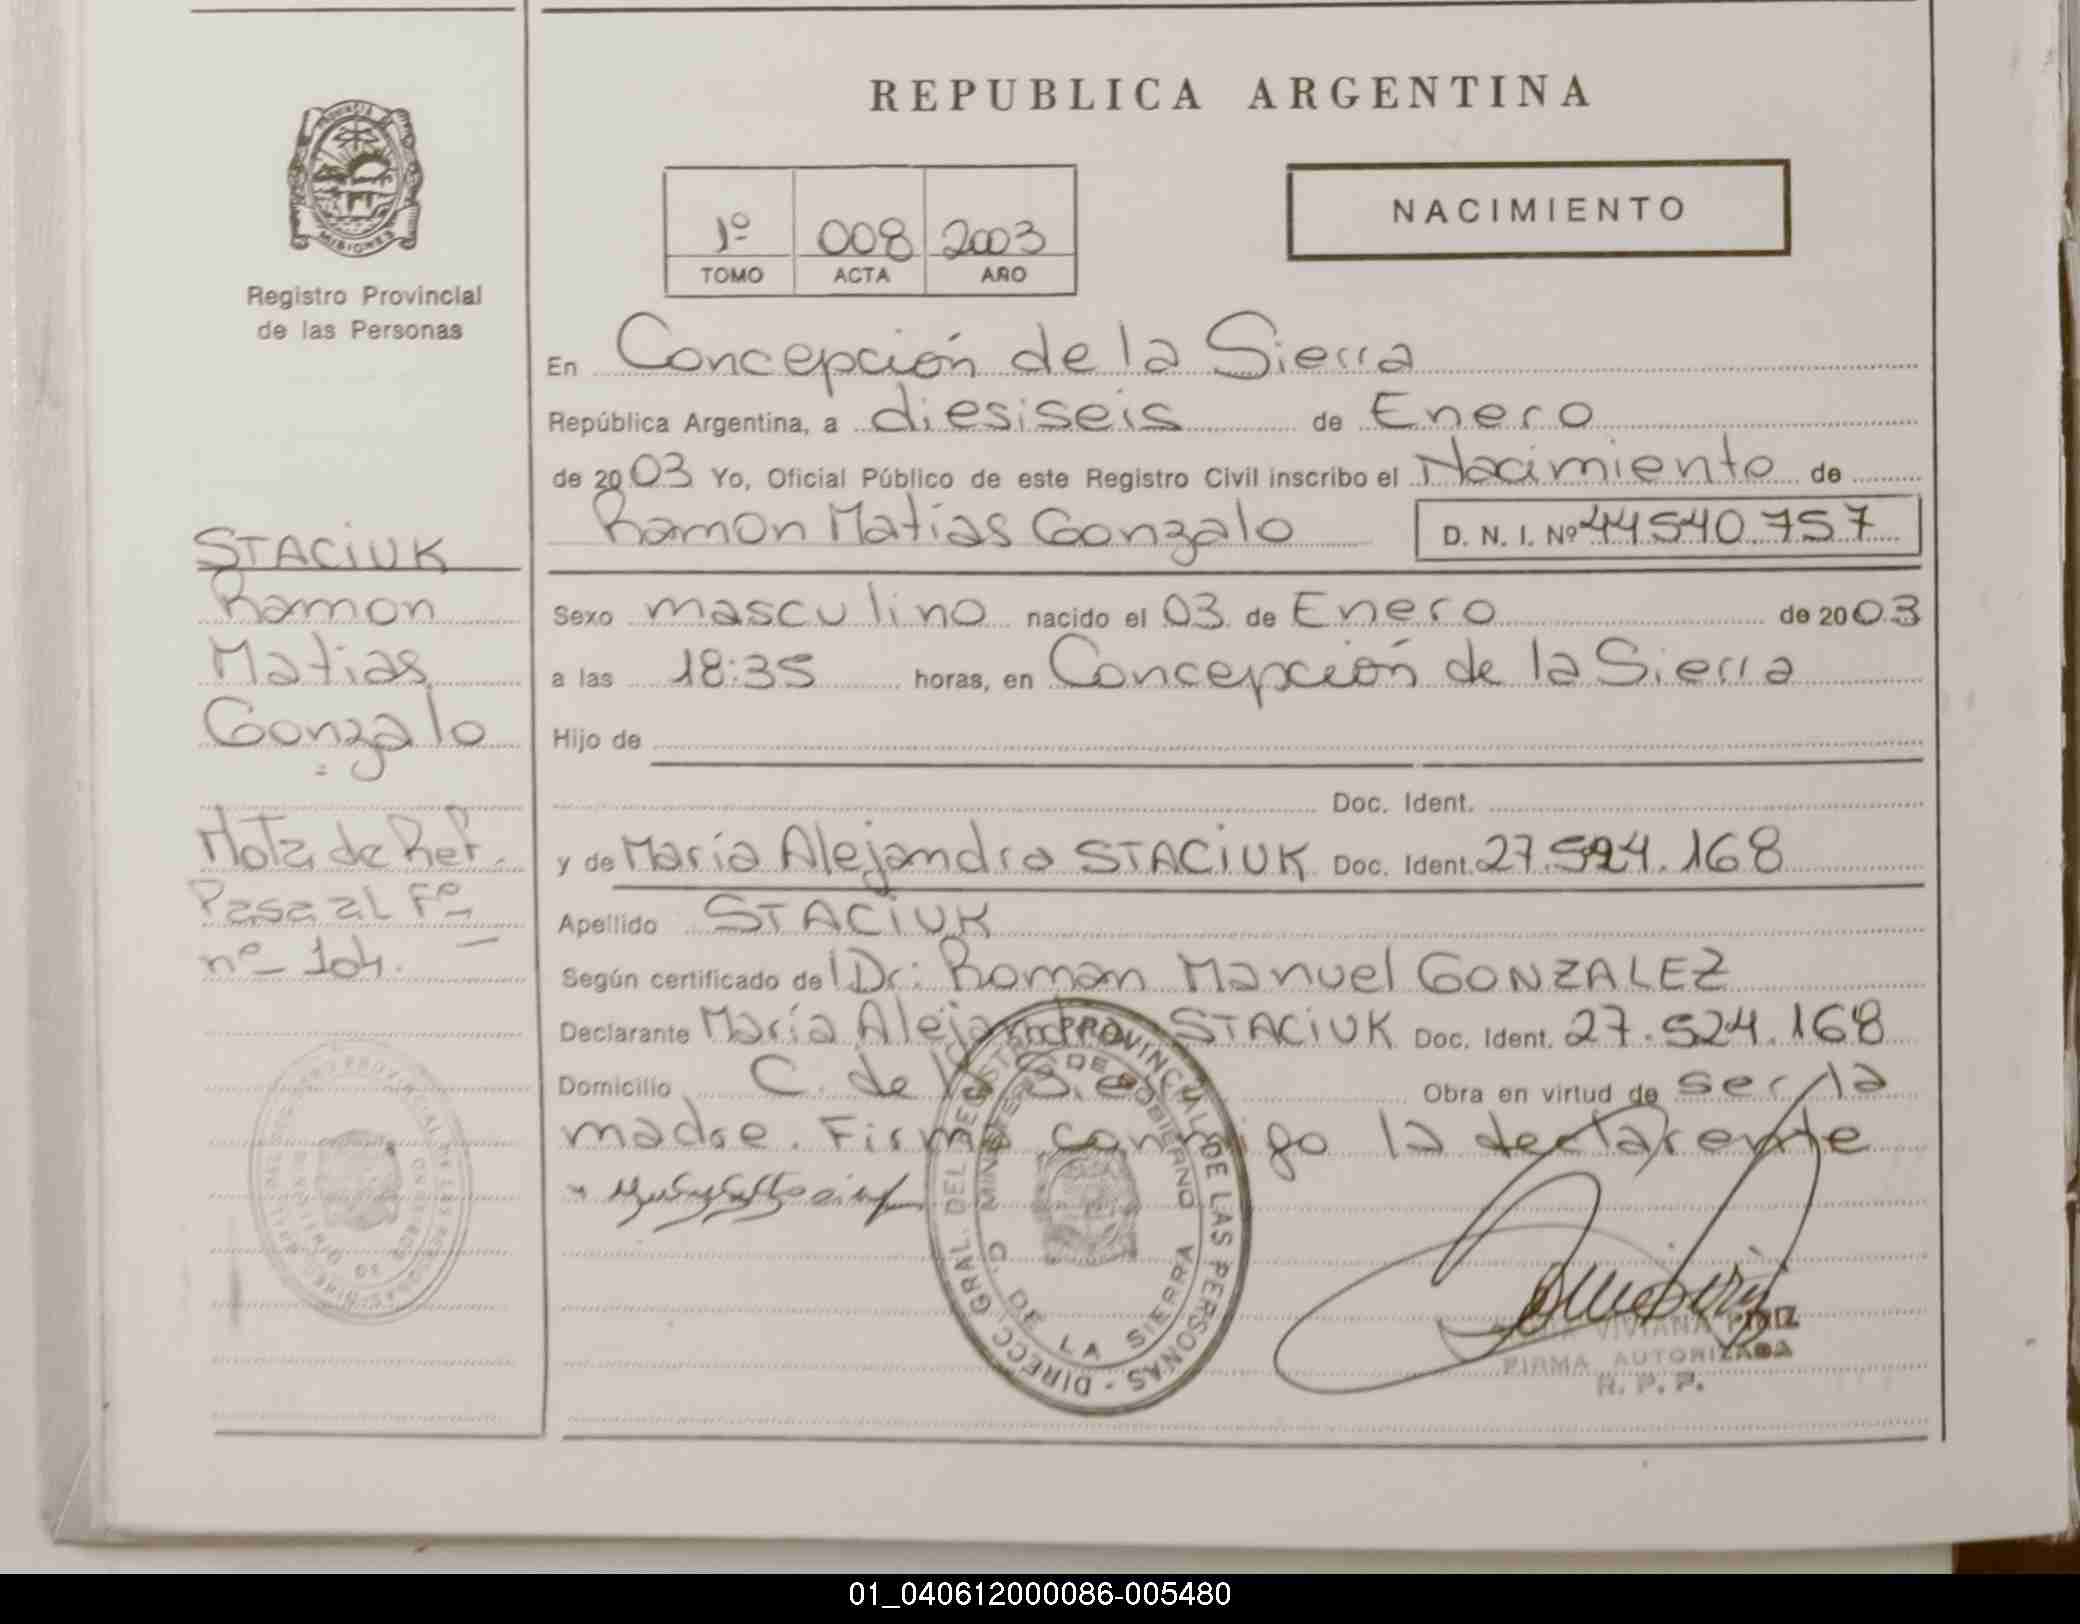 REPUBLICA ARGENTINA
PROVINCIA DE
MISIONES
Registro Provincial
de las Personas
1º 008 2003
TOMO ACTA AÑO
NACIMIENTO
En Concepción de la Sierra
República Argentina, a diesiseis de Enero
de 2003 Yo, Oficial Público de este Registro Civil inscribo el Nacimiento de
Ramon Matias Gonzalo D. N. I. Nº 44540.757
Sexo masculino nacido el 03 de Enero de 2003
a las 18:35 horas, en Concepción de la Sierra
Hijo de
Doc. Ident.
y de María Alejandra STACIUK Doc. Ident. 27.524.168
Apellido STACIUK
Según certificado de Dr: Roman Manuel GONZALEZ
Declarante María Alejandra STACIUK Doc. Ident. 27.524.168
Domicilio C. de la Sierra Obra en virtud de ser la
madre. Firma conmigo la declarente
STACIUK
Ramon
Matias
Gonzalo
Nota de Ref.
Pasa al Fº
nº 104.
DIRECC. GRAL. DEL REGISTRO PROVINCIAL DE LAS PERSONAS -
MINISTERIO DE GOBIERNO
C. DE LA SIERRA
VIVIANA
FIRMA AUTORIZADA
R. P. P.
01_040612000086-005480